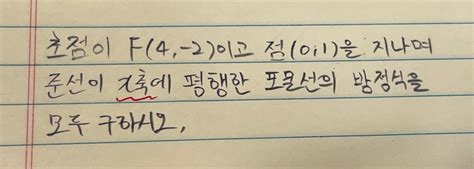 초점이 F(4,-2)이고 점(0,1)을 지나며
준선이 x축에 평행한 포물선의 방정식을
모두 구하시오.